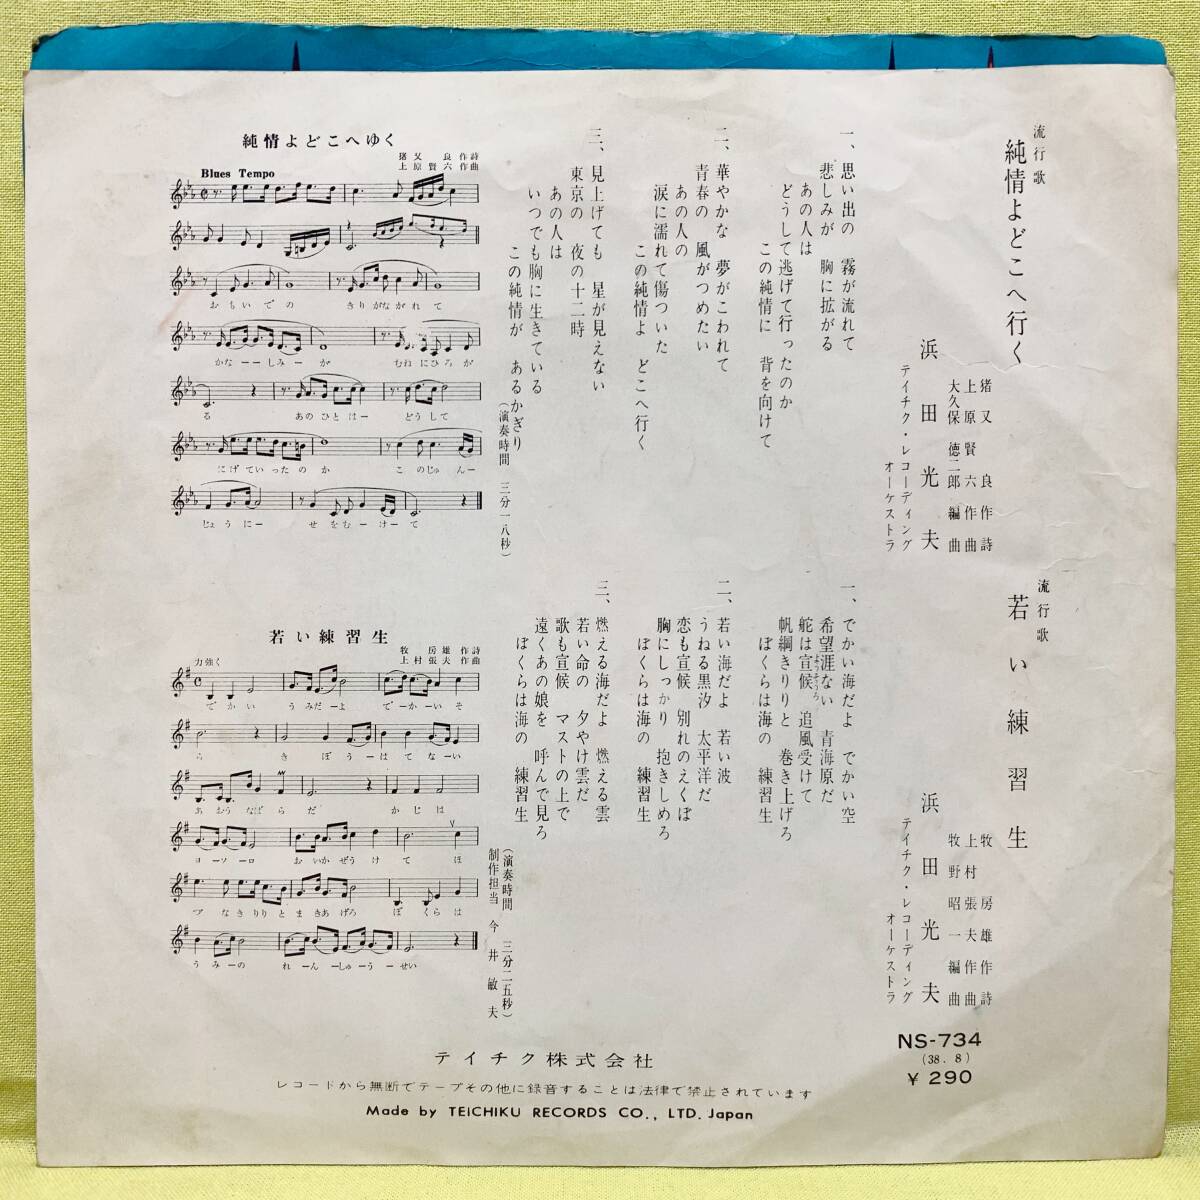 流行歌
純情よどこへ行く
猪又良作詩
上原賢六作曲
大久保徳二郎編曲
浜田光夫
テイチク・レコーディング
オーケストラ
一、思い出の 霧が流れて
悲しみが 胸に拡がる
あの人は
どうして逃げて行ったのか
この純情に 背を向けて
二、華やかな 夢がこわれて
青春の 風がつめたい
あの人の
涙に濡れて傷ついた
この純情よ どこへ行く
三、見上げても 星が見えない
東京の 夜の十二時
あの人は
いつでも胸に生きている
この純情が あるかぎり
(演奏時間 三分一八秒)
純情よどこへゆく
猪又良作詩
上原賢六作曲
Blues Tempo
おもいでの きりがながれて
かなーーしみーが むねにひろが
る あのひとはー どうして
にげていったのか このじゅんー
じょうにー せをむーけーて
流行歌
若い練習生
牧房雄作詩
上村張夫作曲
牧野昭一編曲
浜田光夫
テイチク・レコーディング
オーケストラ
一、でかい海だよ でかい空
希望涯ない 青海原だ
舵は宣候 追風受けて
ようそうろ
帆綱きりりと 巻き上げろ
ぼくらは海の 練習生
二、若い海だよ 若い波
うねる黒汐 太平洋だ
恋も宣候 別れのえくぼ
胸にしっかり 抱きしめろ
ぼくらは海の 練習生
三、燃える海だよ 燃える雲
若い命の 夕やけ雲だ
歌も宣候 マストの上で
遠くあの娘を 呼んで見ろ
ぼくらは海の 練習生
(演奏時間 三分二五秒)
制作担当 今井敏夫
若い練習生
牧房雄作詩
上村張夫作曲
力強く
でかい うみだーよ でーかーいそ
ら きぼうーはてなーい
あおうなばらだ かじは
ヨーソーロ おいかぜうけて ほ
づなきりりとまきあげろ ぼくらは
うみーの れーんーしゅうーせい
NS-734
(38. 8)
¥ 290
テイチク株式会社
レコードから無断でテープその他に録音することは法律で禁止されています
Made by TEICHIKU RECORDS CO., LTD. Japan